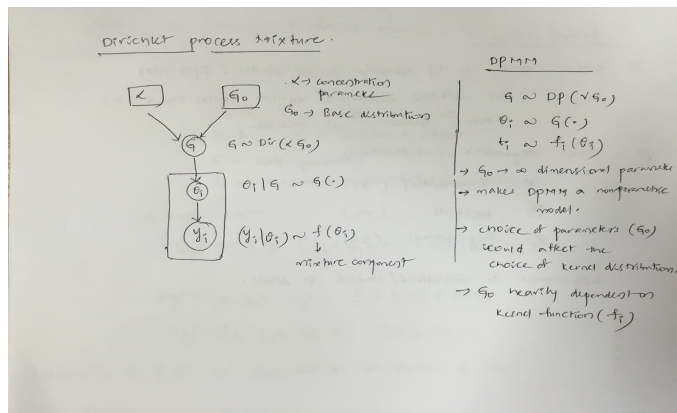 Dirichlet process Mixture.
α
G₀
α → concentration
parameter
G₀ → Base distribution
G
G ~ Dir(α G₀)
θᵢ
θᵢ | G ~ G(·)
yᵢ
(yᵢ|θᵢ) ~ f(θᵢ)
↓
mixture component
DPMM
G ~ DP(α G₀)
θᵢ ~ G(·)
~ fᵢ(θᵢ)
→ G₀ → ∞ dimensional parameter
→ makes DPMM a nonparametric
model.
→ choice of parameters (G₀)
could affect the
choice of kernel distribution.
→ G₀ heavily dependent on
kernel function (fᵢ)